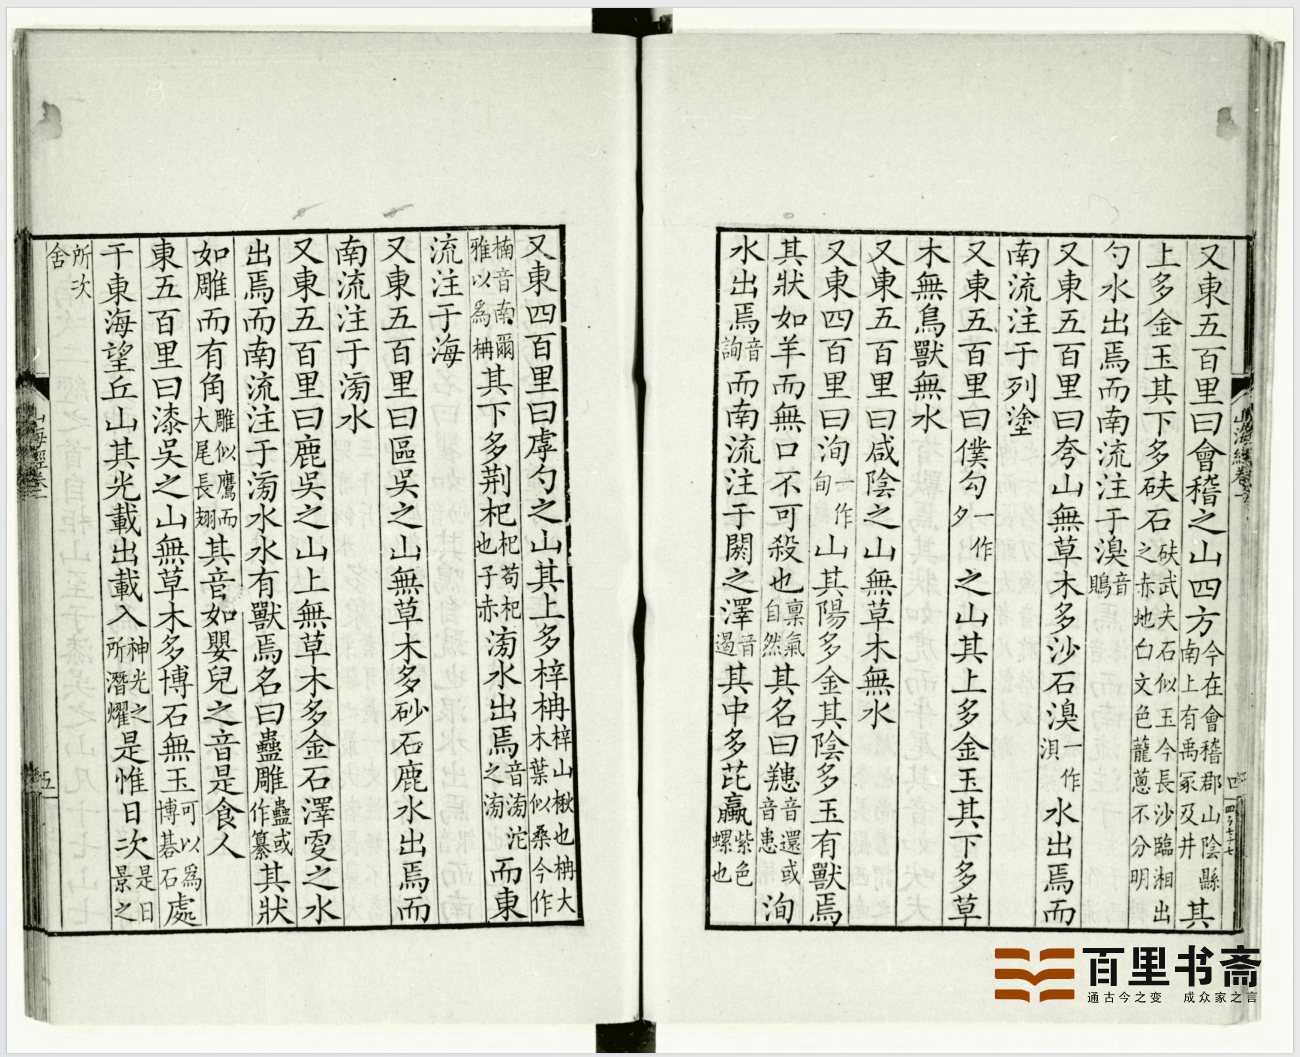 又東五百里曰會稽之山四方今在會稽郡山陰縣南上有禹冢及井其
上多金玉其下多砆石砆武夫石似玉今長沙臨湘出之赤地白文色蘢蔥不分明
勺水出焉而南流注于湨音鵙
又東五百里曰夸山無草木多沙石湨一作浿水出焉而
南流注于列塗
又東五百里曰僕勾一作夕之山其上多金玉其下多草
木無鳥獸無水
又東五百里曰咸陰之山無草木無水
又東四百里曰洵一作旬山其陽多金其陰多玉有獸焉
其狀如羊而無口不可殺也禀氣自然其名曰䍺音還或音患洵
水出焉音詢而南流注于閼之澤音遏其中多茈蠃紫色螺也
又東四百里曰虖勺之山其上多梓枏梓山楸也枏大木葉似桑今作
楠音南爾雅以爲枏其下多荆杞杞苟杞也子赤滂水出焉音滂沱之滂而東
流注于海
又東五百里曰區吳之山無草木多砂石鹿水出焉而
南流注于滂水
又東五百里曰鹿吳之山上無草木多金石澤雯之水
出焉而南流注于滂水水有獸焉名曰蠱雕蠱或作纂其狀
如雕而有角雕似鷹而大尾長翅其音如嬰兒之音是食人
東五百里曰漆吳之山無草木多博石無玉可以爲博碁石處
于東海望丘山其光載出載入神光之所潛燿是惟日次是日景之
所次舍
山海經卷一
五
山海經卷一
四
百里书斋
通古今之变 成众家之言